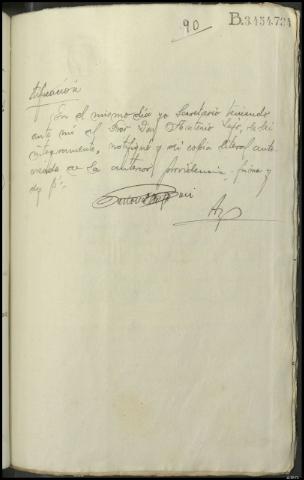 90
B.3.454.724
tificación
En el mismo día yo Secretario teniendo
ante mí al Sor Don Antonio le leí
integramente, notifiqué y di copia literal auto
rizada de la anterior providencia, firma y
doy fé.